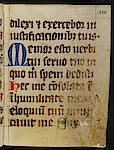 dilexi et exercebor in
iustificationibus tuis.
Memor esto verbi
tui servo tuo in
quo michi spem dedisti.
hec me consolata est
in humilitate mea
eloquium tuum
cavit me